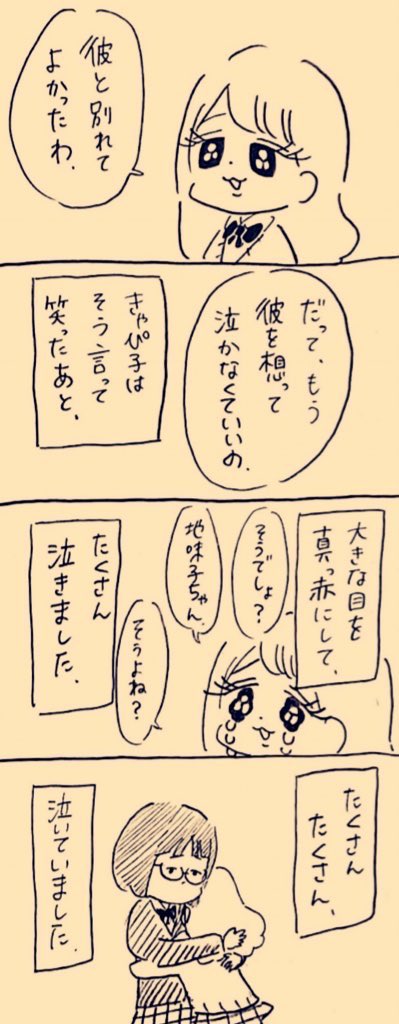 彼と別れて
よかったわ.
だって、もう
彼を想って
泣かなくていいの.
きゃぴ子は
そう言って
笑ったあと、
大きな目を
真っ赤にして、
そうでしょ？
地味子ちゃん.
そうよね？
たくさん
泣きました.
たくさん
たくさん、
泣いていました.